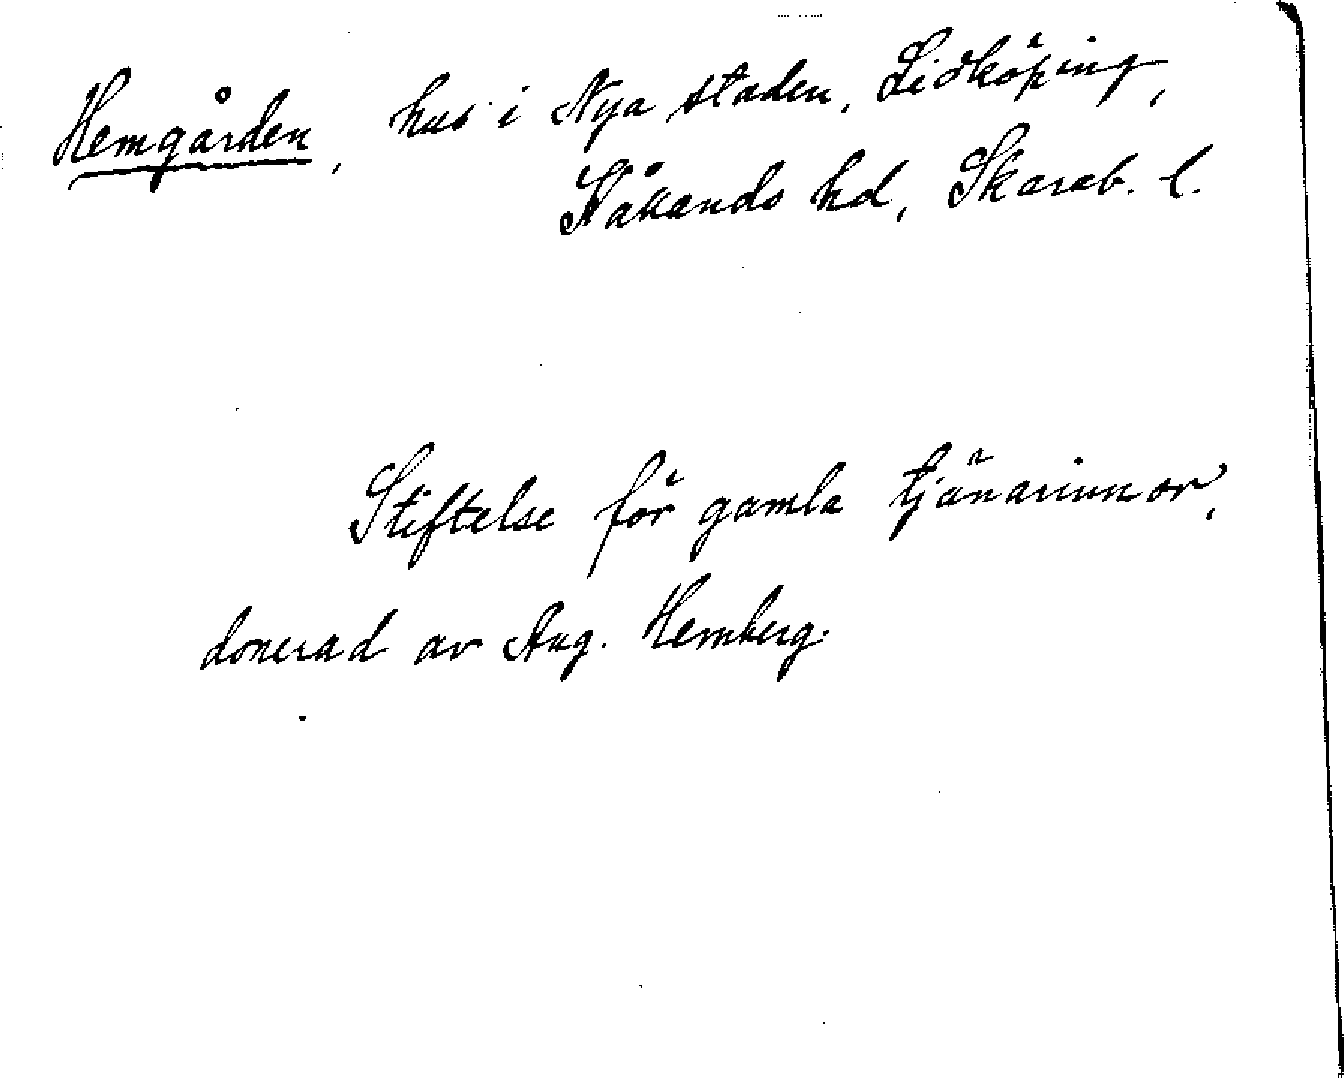 Hemgården, hus i Nya staden, Lidköping,
Kåkands hd, Skarab. l.
Stiftelse för gamla tjänarinnor,
donerad av Aug. Hemberg.